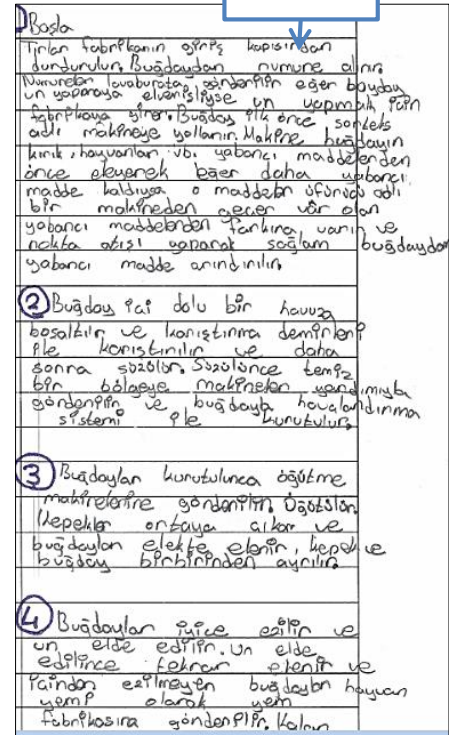 1 Başla
Tırlar fabrikanın giriş kapısından
durdurulur. Buğdaydan numune alınır.
Numuneler lavaburata gönderilir eğer buğday
un yapmaya elverişliyse un yapımak için
fabrikaya girer. Buğday ilk önce sorteks
adlı makineye yollanır. Makine buğdayın
kırık, hayvanları vb. yabancı maddelerden
önce eleyerek eğer daha yabancı
madde kaldıysa o maddeler üfürücü adlı
bir makineden geçer var olan
yabancı maddelerden farkına varır ve
nokta atışı yaparak sağlam buğdaydan
yabancı madde arındırılır.
2 Buğday içi dolu bir havuza
boşaltılır ve karıştırma demirleri
ile karıştırılır ve daha
sonra süzülür. Süzülünce temiz
bir bölgeye makineler yardımıyla
gönderilir ve buğdayla havalandırma
sistemi ile kurutulur.
3 Buğdaylar kurutulunca öğütme
makinelerine gönderilir. Öğütülür
kepekler ortaya çıkar ve
buğdaylar elekte elenir, kepek ve
buğday birbirinden ayrılır.
4 Buğdaylar iyice ezilir ve
un elde edilir. Un elde
edilince tekrar elenir ve
içinden ezilmeyen buğdaylar hayvan
yemi olarak yem
fabrikasına gönderilir. Kalan